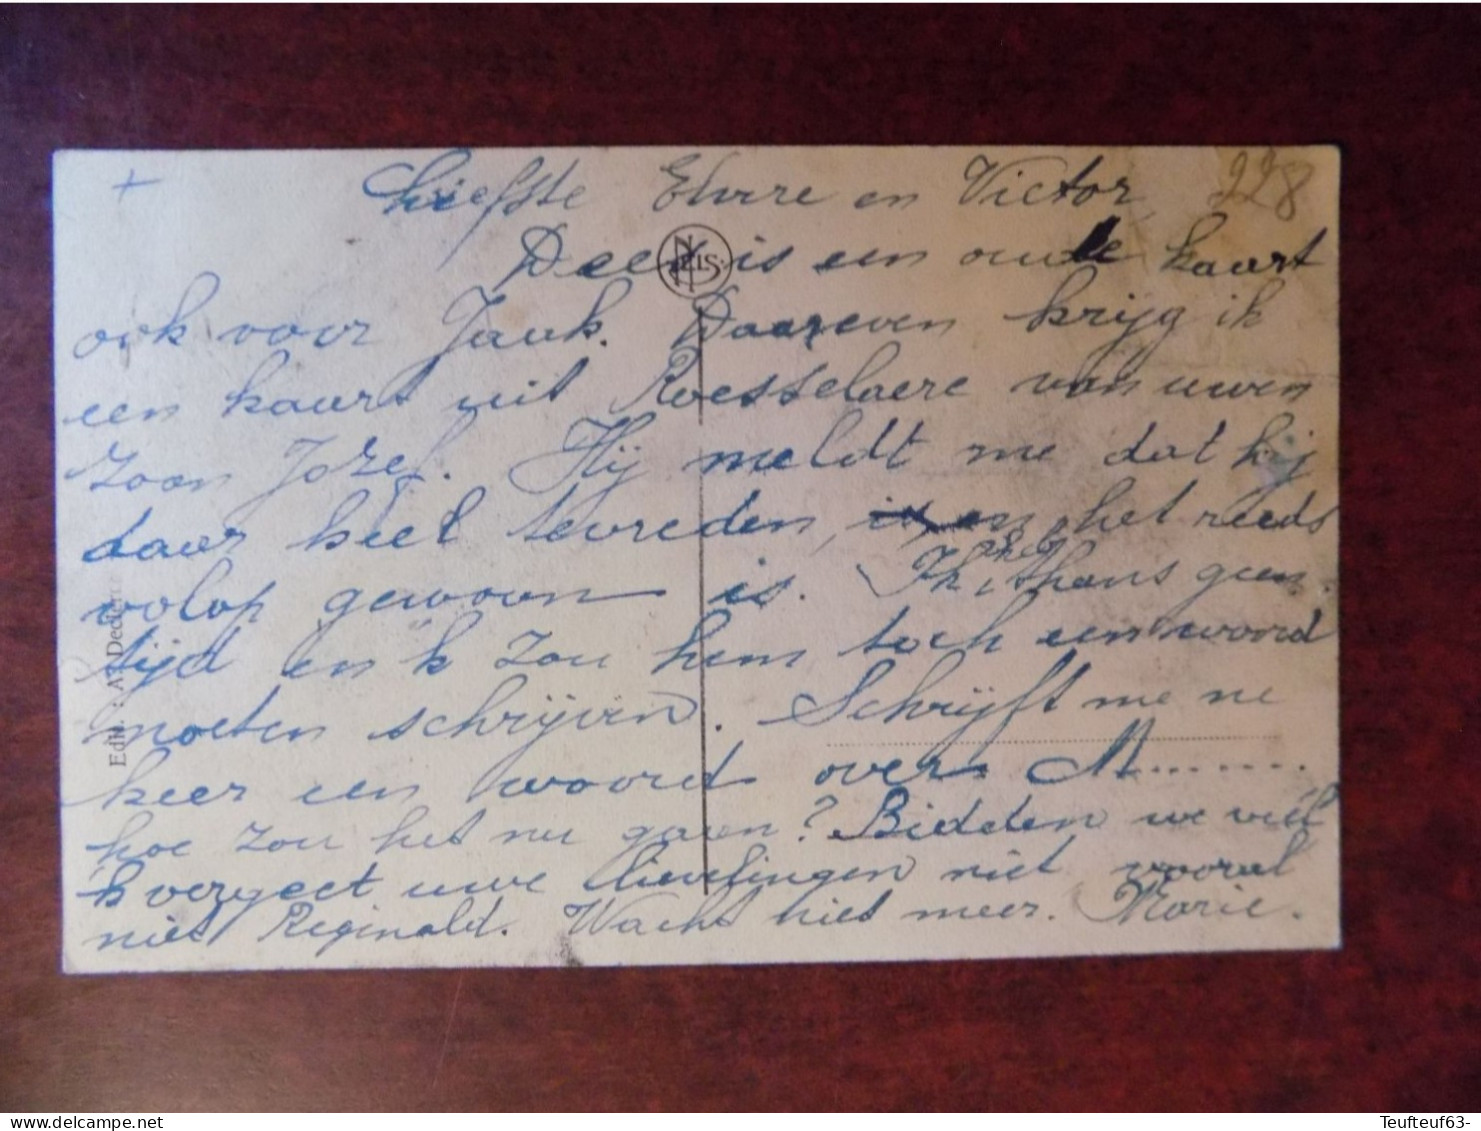 +
228
Liefste Elvire en Victor,
Deez is een oude kaart
NELS
ook voor Jauk. Daareven krijg ik
een kaart uit Roesselaere van uwen
zoon Jozef. Hij meldt me dat hij
daar heel tevreden, is en het reeds
volop gewoon is. Ik heb thans geen
tijd en 'k zou hem toch een woord
moeten schrijven. Schrijft me ne
keer een woord over M........
hoe zou het nu gaan? Bidden we veel
'k vergeet uwe lievelingen niet vooral
niet Reginald. Wacht niet meer. Marie.
Edit. : A. De
Teufteuf63-